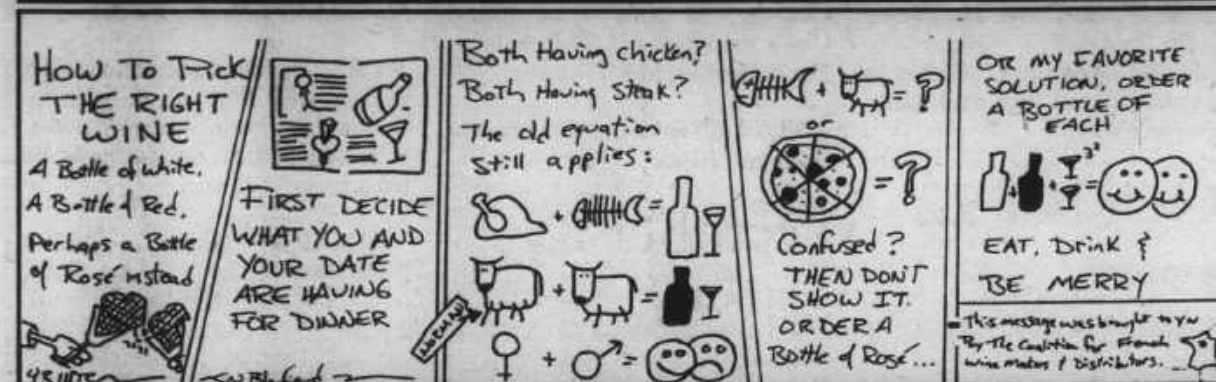 HOW TO PICK
THE RIGHT
WINE
A Bottle of white,
A Bottle of Red,
Perhaps a Bottle
of Rosé instead
FIRST DECIDE
WHAT YOU AND
YOUR DATE
ARE HAVING
FOR DINNER
Both Having chicken?
Both Having Steak?
The old equation
still applies:
+ =
+ =
+ =
+ = ?
or
= ?
Confused?
THEN DON'T
SHOW IT.
ORDER A
Bottle of Rosé...
OR MY FAVORITE
SOLUTION, ORDER
A BOTTLE OF
EACH
+ + =
EAT, Drink &
BE MERRY
This message was brought to you
By The Coalition for French
wine makers & Distributors.